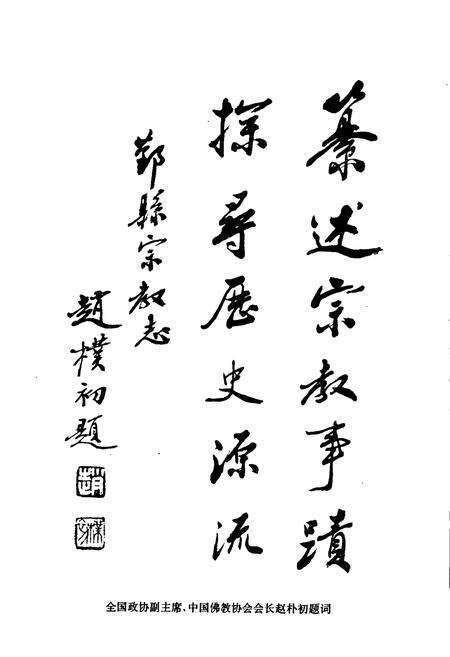 纂述宗教事蹟
探尋歷史源流
鄞縣宗教志
趙樸初題
全国政协副主席、中国佛教协会会长赵朴初题词